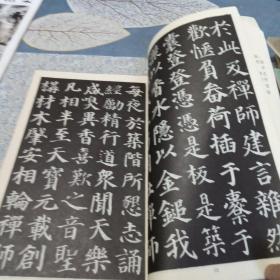 於此及禪師建言雜
歡愜負畚荷插于橐于
囊登登憑憑是板是築
以香水隱以金鎚我
每夜於築階所懇志誦
經勵精行道衆聞天樂
咸嗅異香喜歎之音聖
凡相半至天寶元載創
構材木肇安相輪禪師